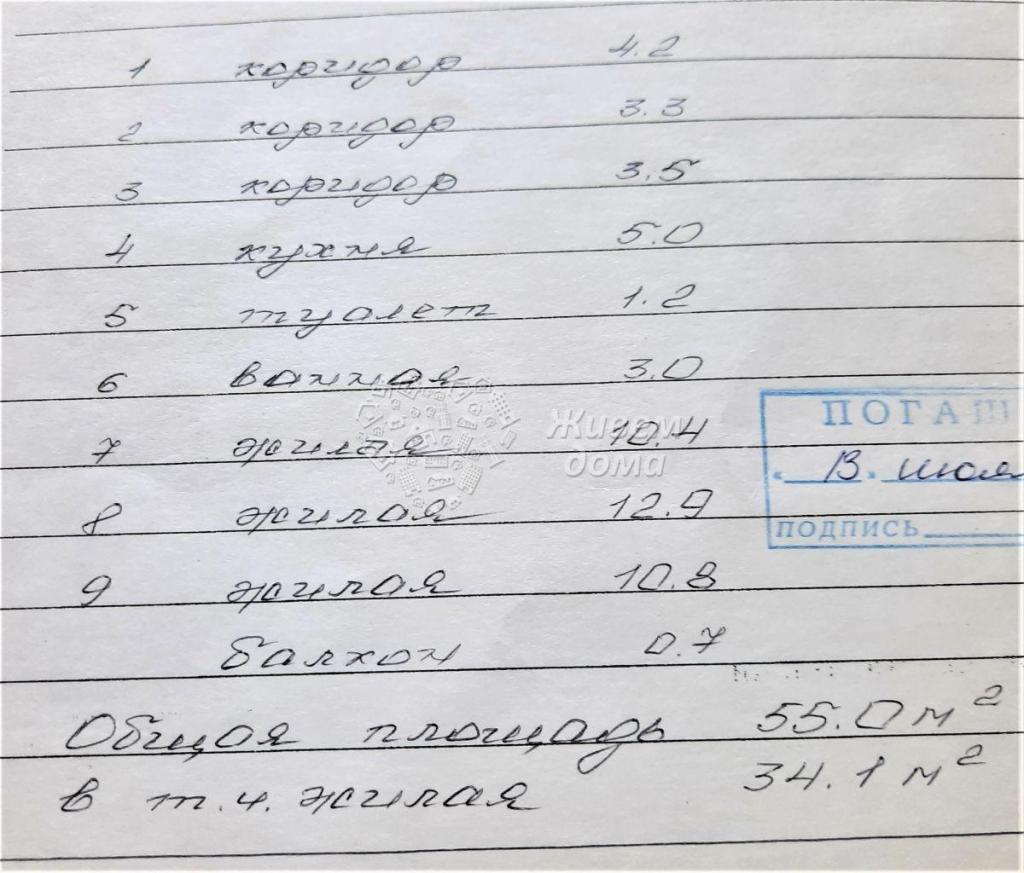 1 коридор 4.2
2 коридор 3.3
3 коридор 3.5
4 кухня 5.0
5 туалет 1.2
6 ванная 3.0
7 жилая 10.4
8 жилая 12.9
9 жилая 10.8
балкон 0.7
Общая площадь 55.0 м²
в т.ч. жилая 34.1 м²
Живем
дома
ПОГАШ
« 13 » июля
ПОДПИСЬ